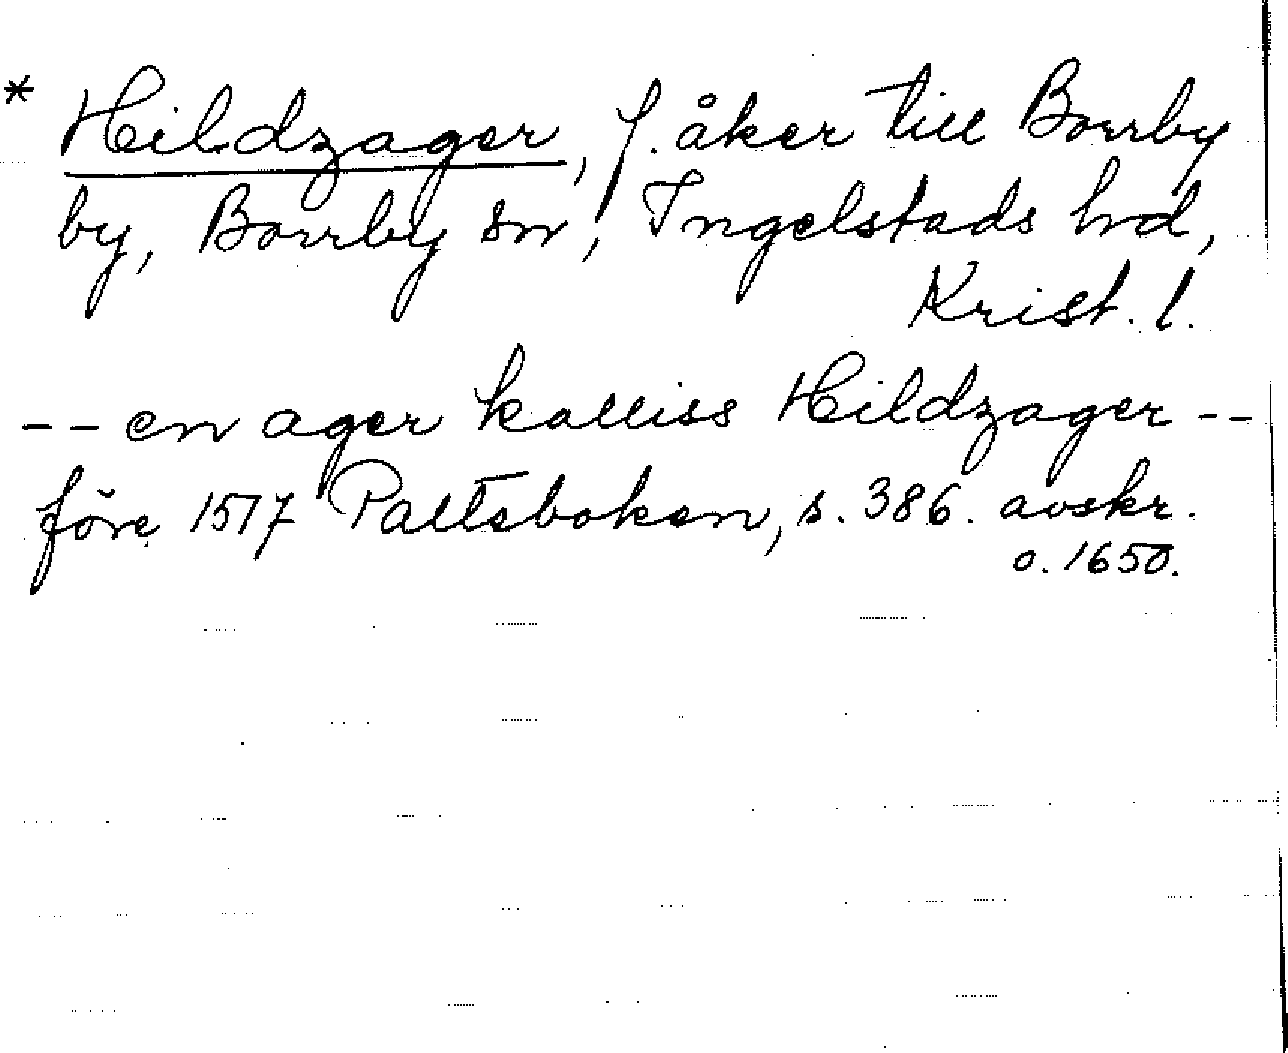 * Hildzager, f. åker till Borrby
by, Borrby sn, Ingelstads hd,
Krist. l.
-- en ager kalliss Hildzager --
före 1517 Paltsboken, s. 386. avskr.
o. 1650.